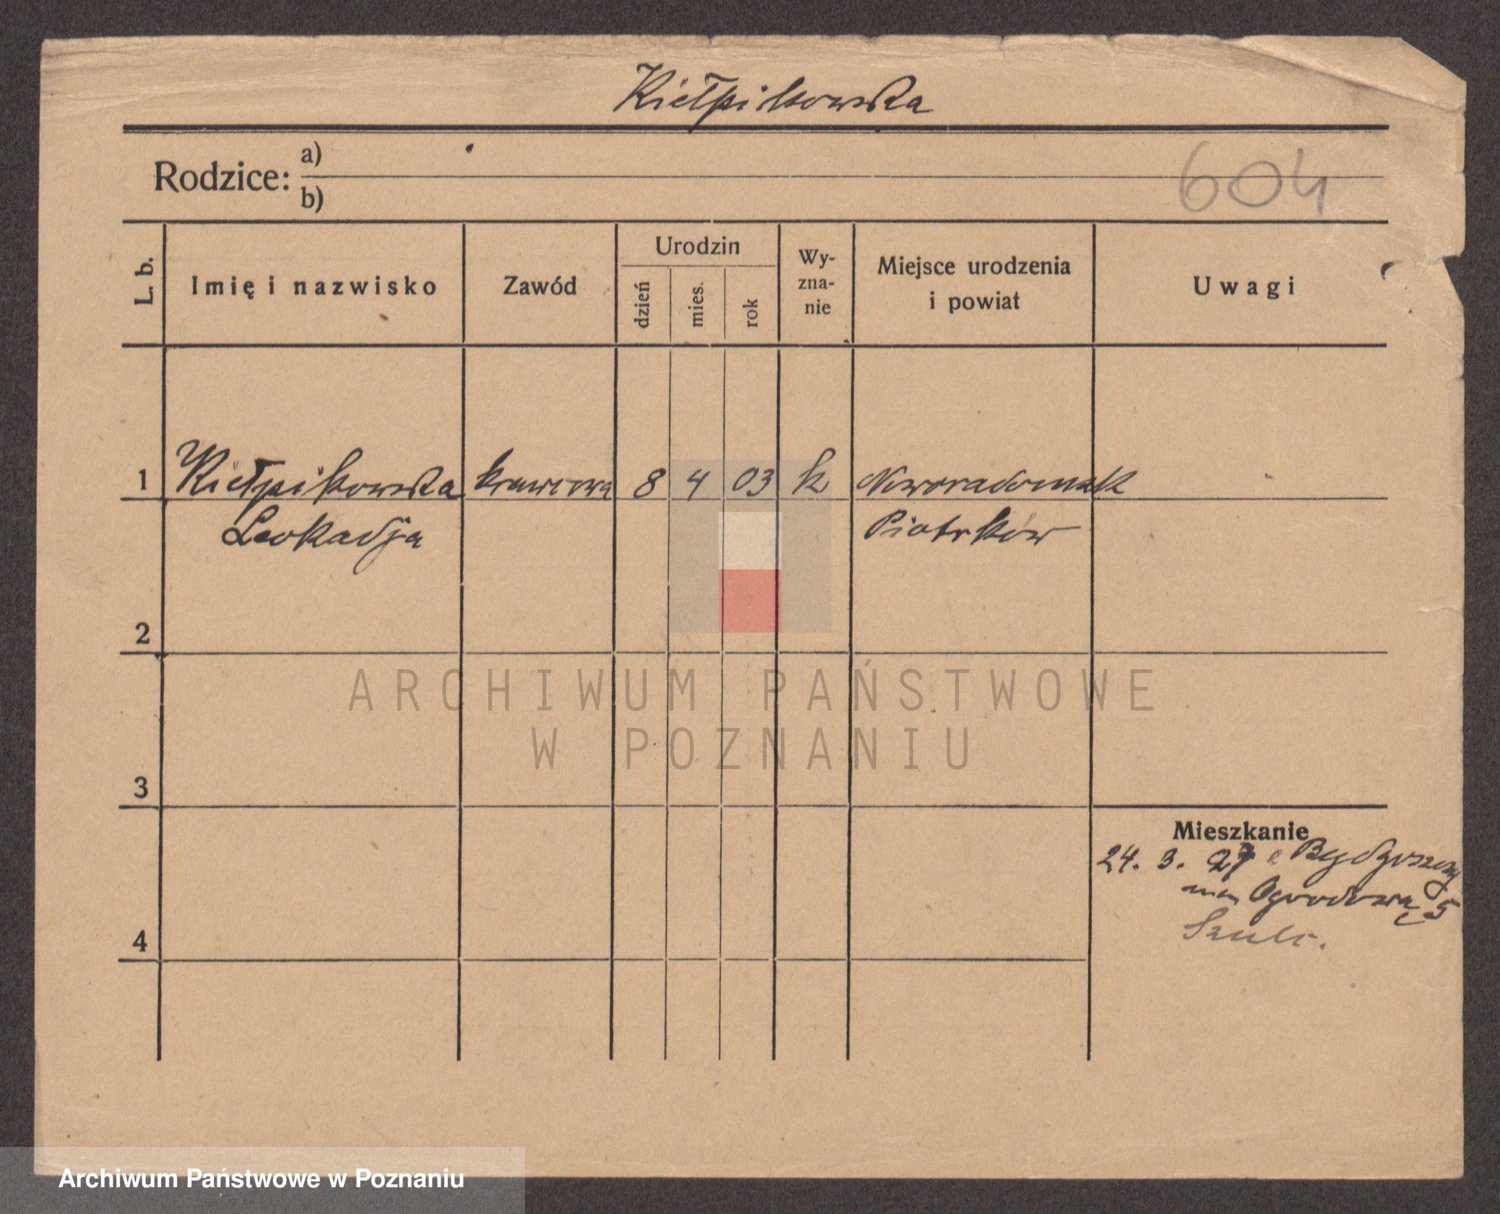 Kiełpikowska
Rodzice: a)
b)
604
L. b.
Imię i nazwisko
Zawód
Urodzin
dzień
mies.
rok
Wy-
zna-
nie
Miejsce urodzenia
i powiat
Uwagi
1 Kiełpikowska krawcowa 8 4 03 k Noworadomsk
Leokadja Piotrków
2
3
4
Mieszkanie
24. 3. 27 z Bydgoszczy
Ogrodową 5
Szulc.
ARCHIWUM PAŃSTWOWE
W POZNANIU
Archiwum Państwowe w Poznaniu